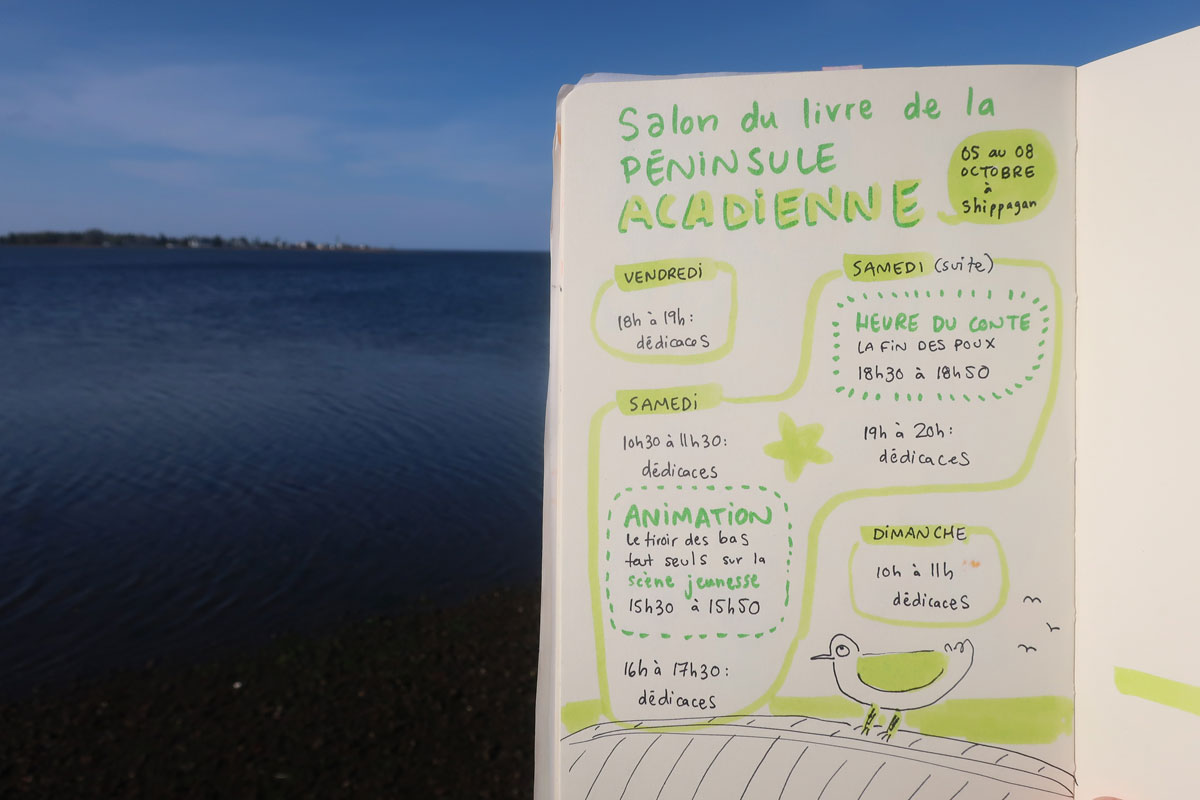 Salon du livre de la
PÉNINSULE
ACADIENNE
05 au 08
OCTOBRE
à
Shippagan
VENDREDI
18h à 19h:
dédicaces
SAMEDI
10h30 à 11h30:
dédicaces
ANIMATION
Le tiroir des bas
tout seuls sur la
scène jeunesse
15h30 à 15h50
16h à 17h30:
dédicaces
SAMEDI (suite)
HEURE DU CONTE
LA FIN DES POUX
18h30 à 18h50
19h à 20h:
dédicaces
DIMANCHE
10h à 11h
dédicaces